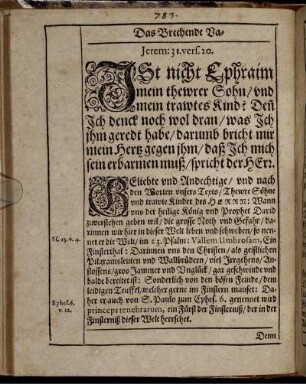 783.
Das Brechende Va-
Jerem: 31. vers. 20.
ISt nicht Ephraim
mein thewrer Sohn / vnd
mein trawtes Kind? Deñ
Ich denck noch wol dran / was Ich
jhm geredt habe / darumb bricht mir
mein Hertz gegen jhm / daß Ich mich
sein erbarmen muß / spricht der HErr.
GEliebte vnd Andechtige / vnd nach
den Worten vnsers Texts / Thewre Söhne
vnd trawte Kinder des HERRN: Wann
vns der heilige König vnd Prophet David
zuverstehen geben wil / die grosse Noth vnd Gefahr / da-
rinnen wir hier in dieser Welt leben vnd schweben / so nen-
Ps. 23. v. 4.
net er die Welt / im 23. Psalm: Vallem Umbrosam, Ein
Finsterthal: Darinnen vns den Christen / als geistlichen
Pilgramsleuten vnd Wallbrüdern / viel Jrrgehens / An-
stossens / gros Jammer vnd Vnglück / gar geschwinde vnd
balde bereitet ist: Sonderlich von den bösen Feinde / dem
leidigen Teuffel / welcher gerne im Finstern mauset: Da-
Ephes. 6.
v. 12.
her er auch von S. Paulo zun Ephes. 6. genennet wird
princeps tenebrarum, ein Fürst der Finsterniß / der in der
Finsterniß dieser Welt herrschet.
Denn